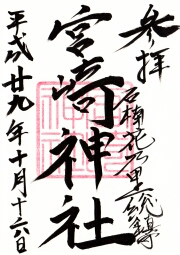 参拝
石楠花乃里総鎮
宮崎神社
平成廿九年十月十六日